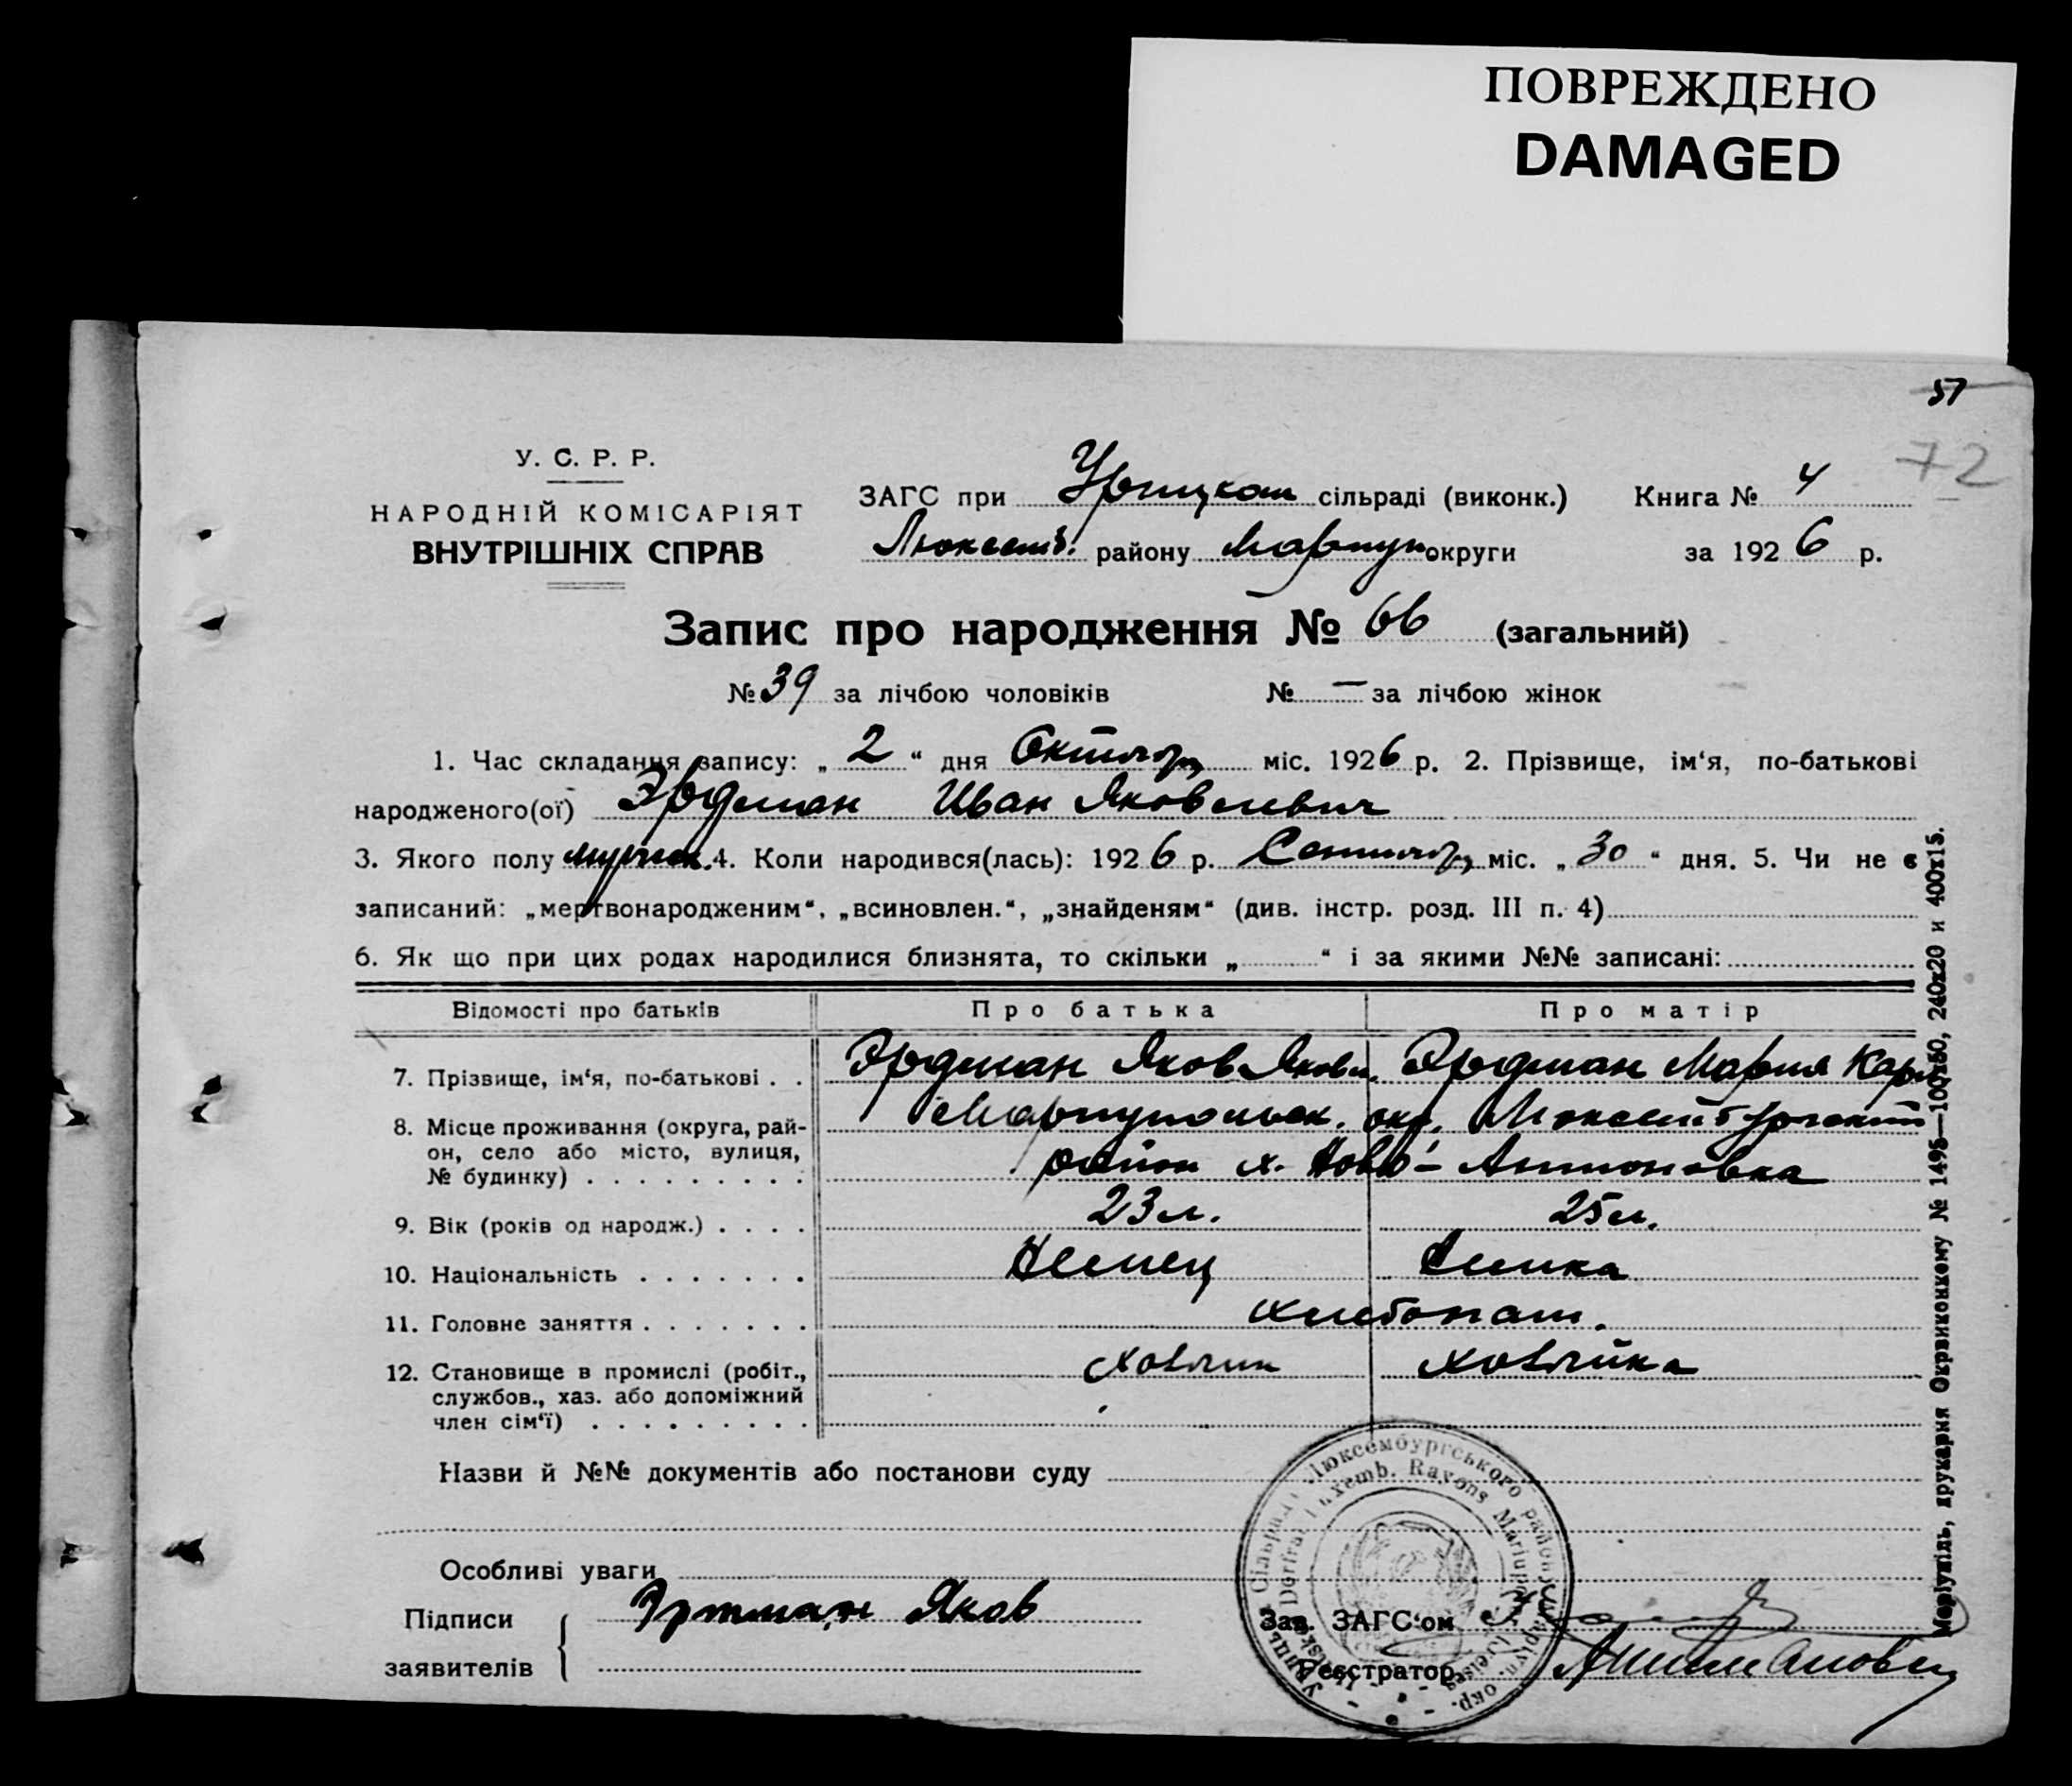 ПОВРЕЖДЕНО
DAMAGED
51
72
У. С. Р. Р.
НАРОДНІЙ КОМІСАРІЯТ
ВНУТРІШНІХ СПРАВ
ЗАГС при Урицком сільраді (виконк.) Книга № 4
Люксемб. району Мариуп округи за 1926 р.
Запис про народження № 66 (загальний)
№ 39 за лічбою чоловіків № — за лічбою жінок
1. Час складання запису: „ 2 “ дня Октября міс. 1926 р. 2. Прізвище, ім‘я, по-батькові
народженого(ої) Эрдман Иван Яковлевич
3. Якого полу мужск. 4. Коли народився(лась): 1926 р. Сентября міс. „ 30 “ дня. 5. Чи не є
записаний: „мертвонародженим“, „всиновлен.“, „знайденям“ (див. інстр. розд. III п. 4)
6. Як що при цих родах народилися близнята, то скільки „ “ і за якими №№ записані:
Відомості про батьків Про батька Про матір
7. Прізвище, ім‘я, по-батькові . . Эрдман Яков Яковл. Эрдман Мария Карл
8. Місце проживання (округа, рай-
он, село або місто, вулиця,
№ будинку) . . . . . . . . .
Мариупольск. окр. Люксембургский
район х. Ново-Антоновка
9. Вік (років од народж.) . . . . 23 л. 25 л.
10. Національність . . . . . . . Немец Немка
11. Головне заняття . . . . . . . хлебопаш.
12. Становище в промислі (робіт.,
службов., хаз. або допоміжний
член сім‘ї) . . . . . . . . .
хозяин хозяйка
Назви й №№ документів або постанови суду
Особливі уваги
Підписи
заявителів
Эртман Яков
Зав. ЗАГС‘ом
Реєстратор
Люксембургського району Маріуп. окр.
Luxemb. Rayons Mariupoler Kreises
Маріупіль, друкарня Окрвиконкому № 1495—100х50, 240х20 и 400х15.